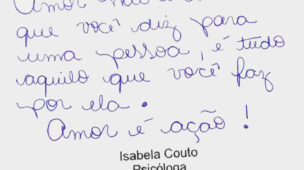 Amor não é
que você diz para
uma pessoa, é tudo
aquilo que você faz
por ela.
Amor é ação!
Isabela Couto
Psicóloga